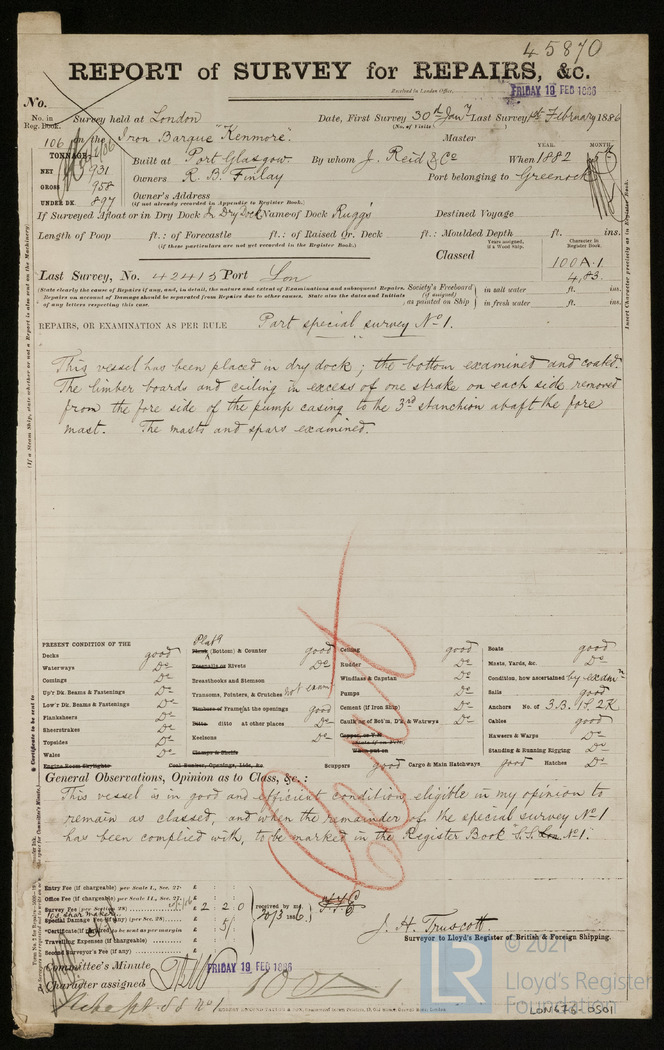 45870
REPORT of SURVEY for REPAIRS, &c.
Received in London Office, FRIDAY 19 FEB 1886
No.
No. in Reg. Book. Survey held at London Date, First Survey 30th Jany Last Survey 1st February 1886
(No. of Visits )
106 on the Iron Barque "Kenmore" Master
TONNAGE Built at Port Glasgow By whom J. Reid & Co When 1882 YEAR. MONTH.
NET 931 Owners R. B. Finlay Port belonging to Greenock
GROSS 958
UNDER DK. 897 Owner's Address
(if not already recorded in Appendix to Register Book.)
If Surveyed Afloat or in Dry Dock Dry Dock Name of Dock Ruggs Destined Voyage
Length of Poop ft.: of Forecastle ft.: of Raised Qr. Deck ft.: Moulded Depth ft. ins.
(if these particulars are not yet recorded in the Register Book.)
Years assigned, if a Wood Ship. Character in Register Book.
Classed 100 A.1
Last Survey, No. 42415 Port Lon 4,83.
(State clearly the cause of Repairs if any, and, in detail, the nature and extent of Examinations and subsequent Repairs.
Repairs on account of Damage should be separated from Repairs due to other causes. State also the dates and Initials
of any letters respecting this case.
Society's Freeboard (if assigned) as painted on Ship
in salt water ft. ins.
in fresh water ft. ins.
REPAIRS, OR EXAMINATION AS PER RULE Part special survey No 1.
This vessel has been placed in dry dock; the bottom examined and coated.
The limber boards and ceiling in excess of one strake on each side removed
from the fore side of the pump casing to the 3rd stanchion abaft the fore
mast. The masts and spars examined.
Cert
PRESENT CONDITION OF THE
Decks good
Waterways Do
Comings Do
Up'r Dk. Beams & Fastenings Do
Low'r Dk. Beams & Fastenings Do
Planksheers Do
Sheerstrakes Do
Topsides Do
Wales Do
Engine Room Skylights
Platg
Plank (Bottom) & Counter good
Treenails or Rivets Do
Breasthooks and Stemson
Transoms, Pointers, & Crutches not seen
Timbers of Frame at the openings good
Ditto ditto at other places Do
Keelsons Do
Clamps & Shelfs
Coal Bunker, Openings, Lids, &c.
Ceiling good
Rudder Do
Windlass & Capstan Do
Pumps Do
Cement (if Iron Ship) Do
Caulking of Bot'm, D'k, & Waterways Do
Scuppers good Cargo & Main Hatchways good Hatches Do
Boats good
Masts, Yards, &c. Do
Condition, how ascertained by examn
Sails good
Anchors No. of 3.B. 1S. 2K
Cables good
Hawsers & Warps Do
Standing & Running Rigging Do
General Observations, Opinion as to Class, &c.:
This vessel is in good and efficient condition, eligible in my opinion to
remain as classed, and when the remainder of the special survey No 1
has been complied with, to be marked in the Register Book S.S. Lon No 1.
Entry Fee (if chargeable) per Scale I., Sec. 27. £ : :
Office Fee (if chargeable) per Scale II., Sec. 27. £ : :
Survey Fee (per Section 28) £ 2 2 0
Special Damage Fee (if any) (per Sec. 28) £ : :
*Certificate (if required) to be sent as per margin £ 5/-
Travelling Expenses (if chargeable) £
Second Surveyor's Fee (if any)
received by me, 20/3 1886
J. H. Truscott
Surveyor to Lloyd's Register of British & Foreign Shipping.
Committee's Minute FRIDAY 19 FEB 1886
Character assigned 100 A1
pt SS No 1
© 2021
LR
Lloyd's Register
Foundation
LON676-0501
(If a Steam Ship, state whether or not a Report is also sent on the Machinery.)
Insert Character precisely as in Register Book.